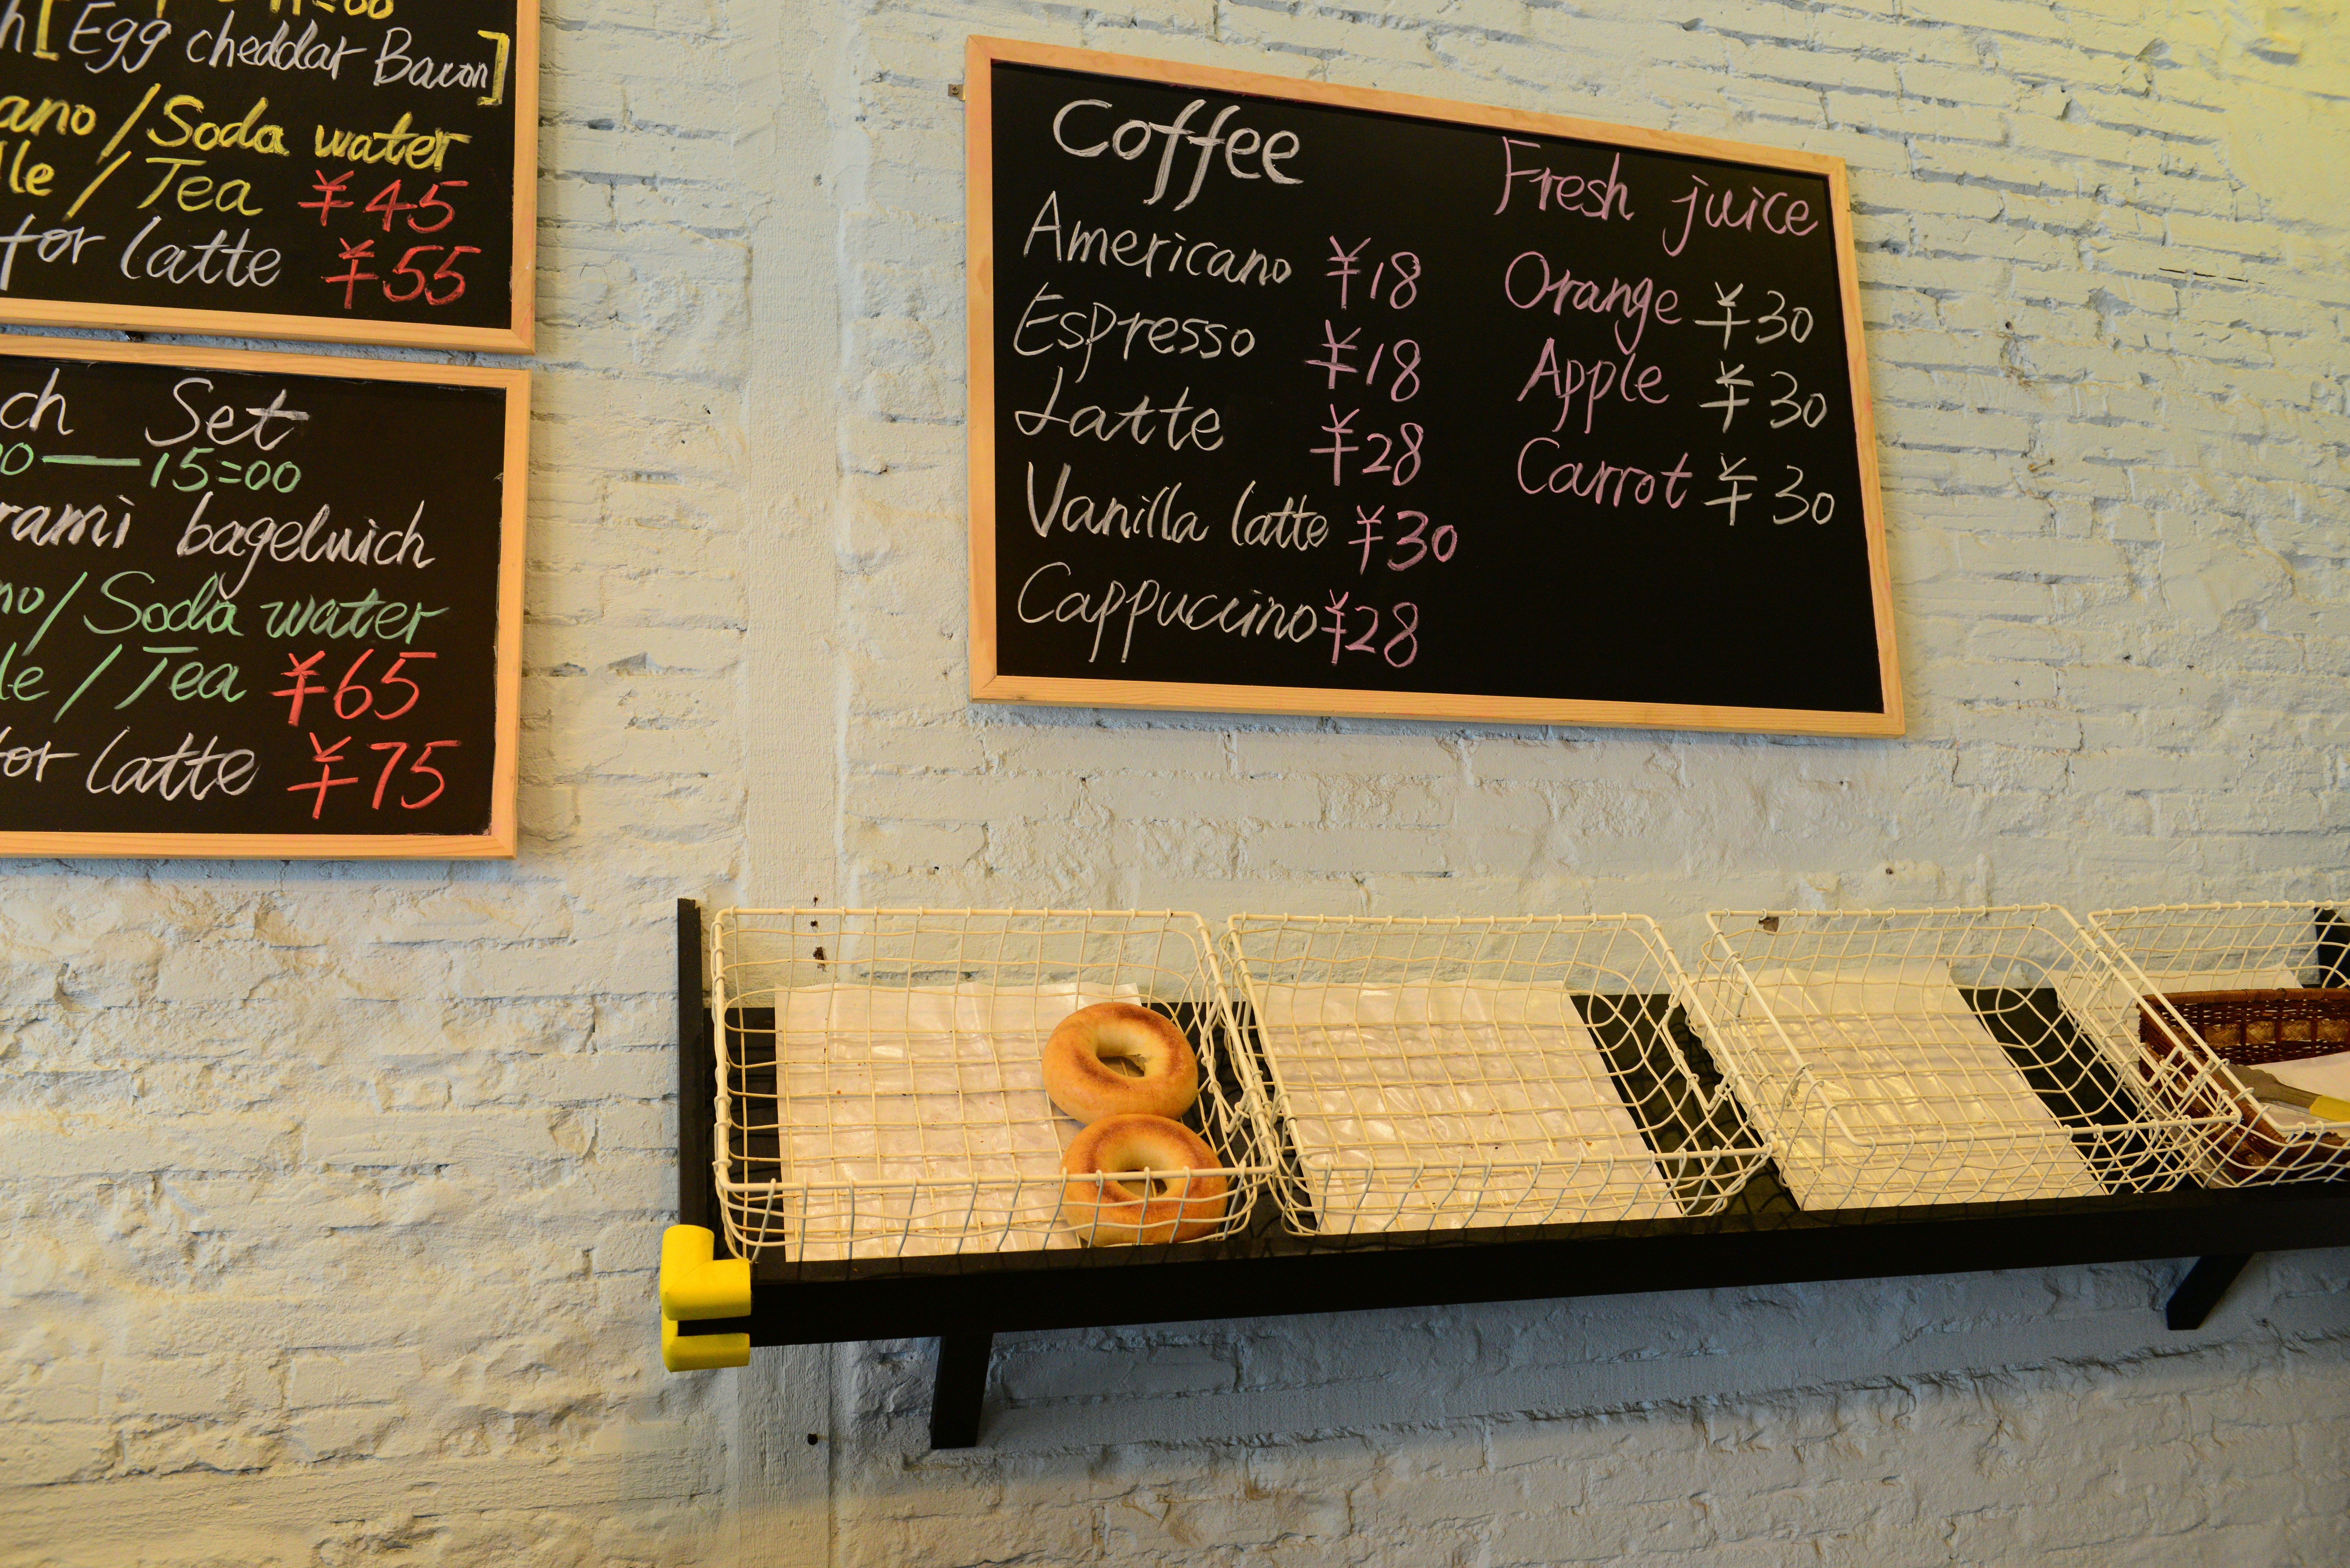 [Egg cheddar Bacon]
/Soda water
/Tea ¥45
for latte ¥55
Set
15=00
bagelwich
/Soda water
/Tea ¥65
for latte ¥75
Coffee
Americano ¥18
Espresso ¥18
Latte ¥28
Vanilla latte ¥30
Cappuccino ¥28
Fresh juice
Orange ¥30
Apple ¥30
Carrot ¥30